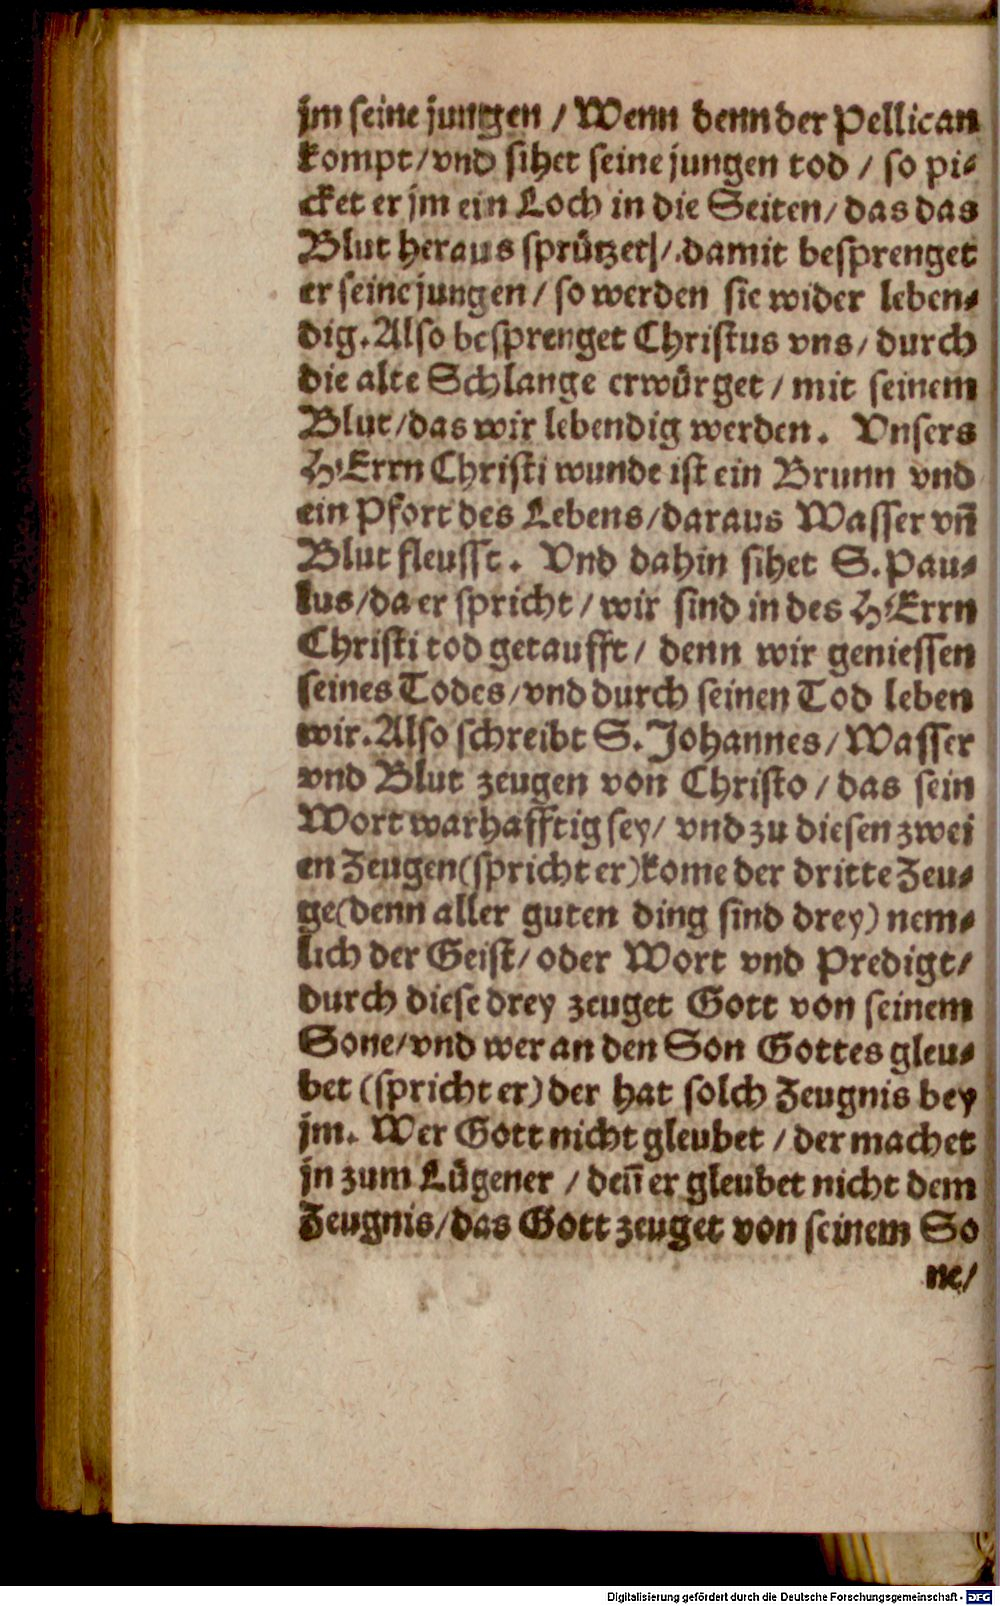 jm ſeine jungen / Wenn denn der Pellican
kompt/vnd ſihet ſeine jungen tod / ſo pi⸗
cket er jm ein Loch in die Seiten/ das das
Blut heraus ſprützet/ damit beſprenget
er ſeine jungen / ſo werden ſie wider leben⸗
dig. Alſo beſprenget Chriſtus vns/ durch
die alte Schlange erwürget / mit ſeinem
Blut/das wir lebendig werden. Vnſers
HErrn Chriſti wunde iſt ein Brunn vnd
ein Pfort des Lebens/daraus Waſſer vn̄
Blut fleuſſt. Vnd dahin ſihet S. Pau⸗
lus/da er ſpricht / wir ſind in des HErrn
Chriſti tod getaufft/ denn wir genieſſen
ſeines Todes/vnd durch ſeinen Tod leben
wir. Alſo ſchreibt S. Johannes/ Waſſer
vnd Blut zeugen von Chriſto / das ſein
Wort warhafftig ſey/ vnd zu dieſen zwei
en Zeugen(ſpricht er)kome der dritte Zeu⸗
ge(denn aller guten ding ſind drey) nem⸗
lich der Geiſt/ oder Wort vnd Predigt/
durch dieſe drey zeuget Gott von ſeinem
Sone/vnd wer an den Son Gottes gleu⸗
bet (ſpricht er) der hat ſolch Zeugnis bey
jm. Wer Gott nicht gleubet / der machet
jn zum Lügener / den̄ er gleubet nicht dem
Zeugnis/das Gott zeuget von ſeinem So
ne/
Digitalisierung gefördert durch die Deutsche Forschungsgemeinschaft - DFG